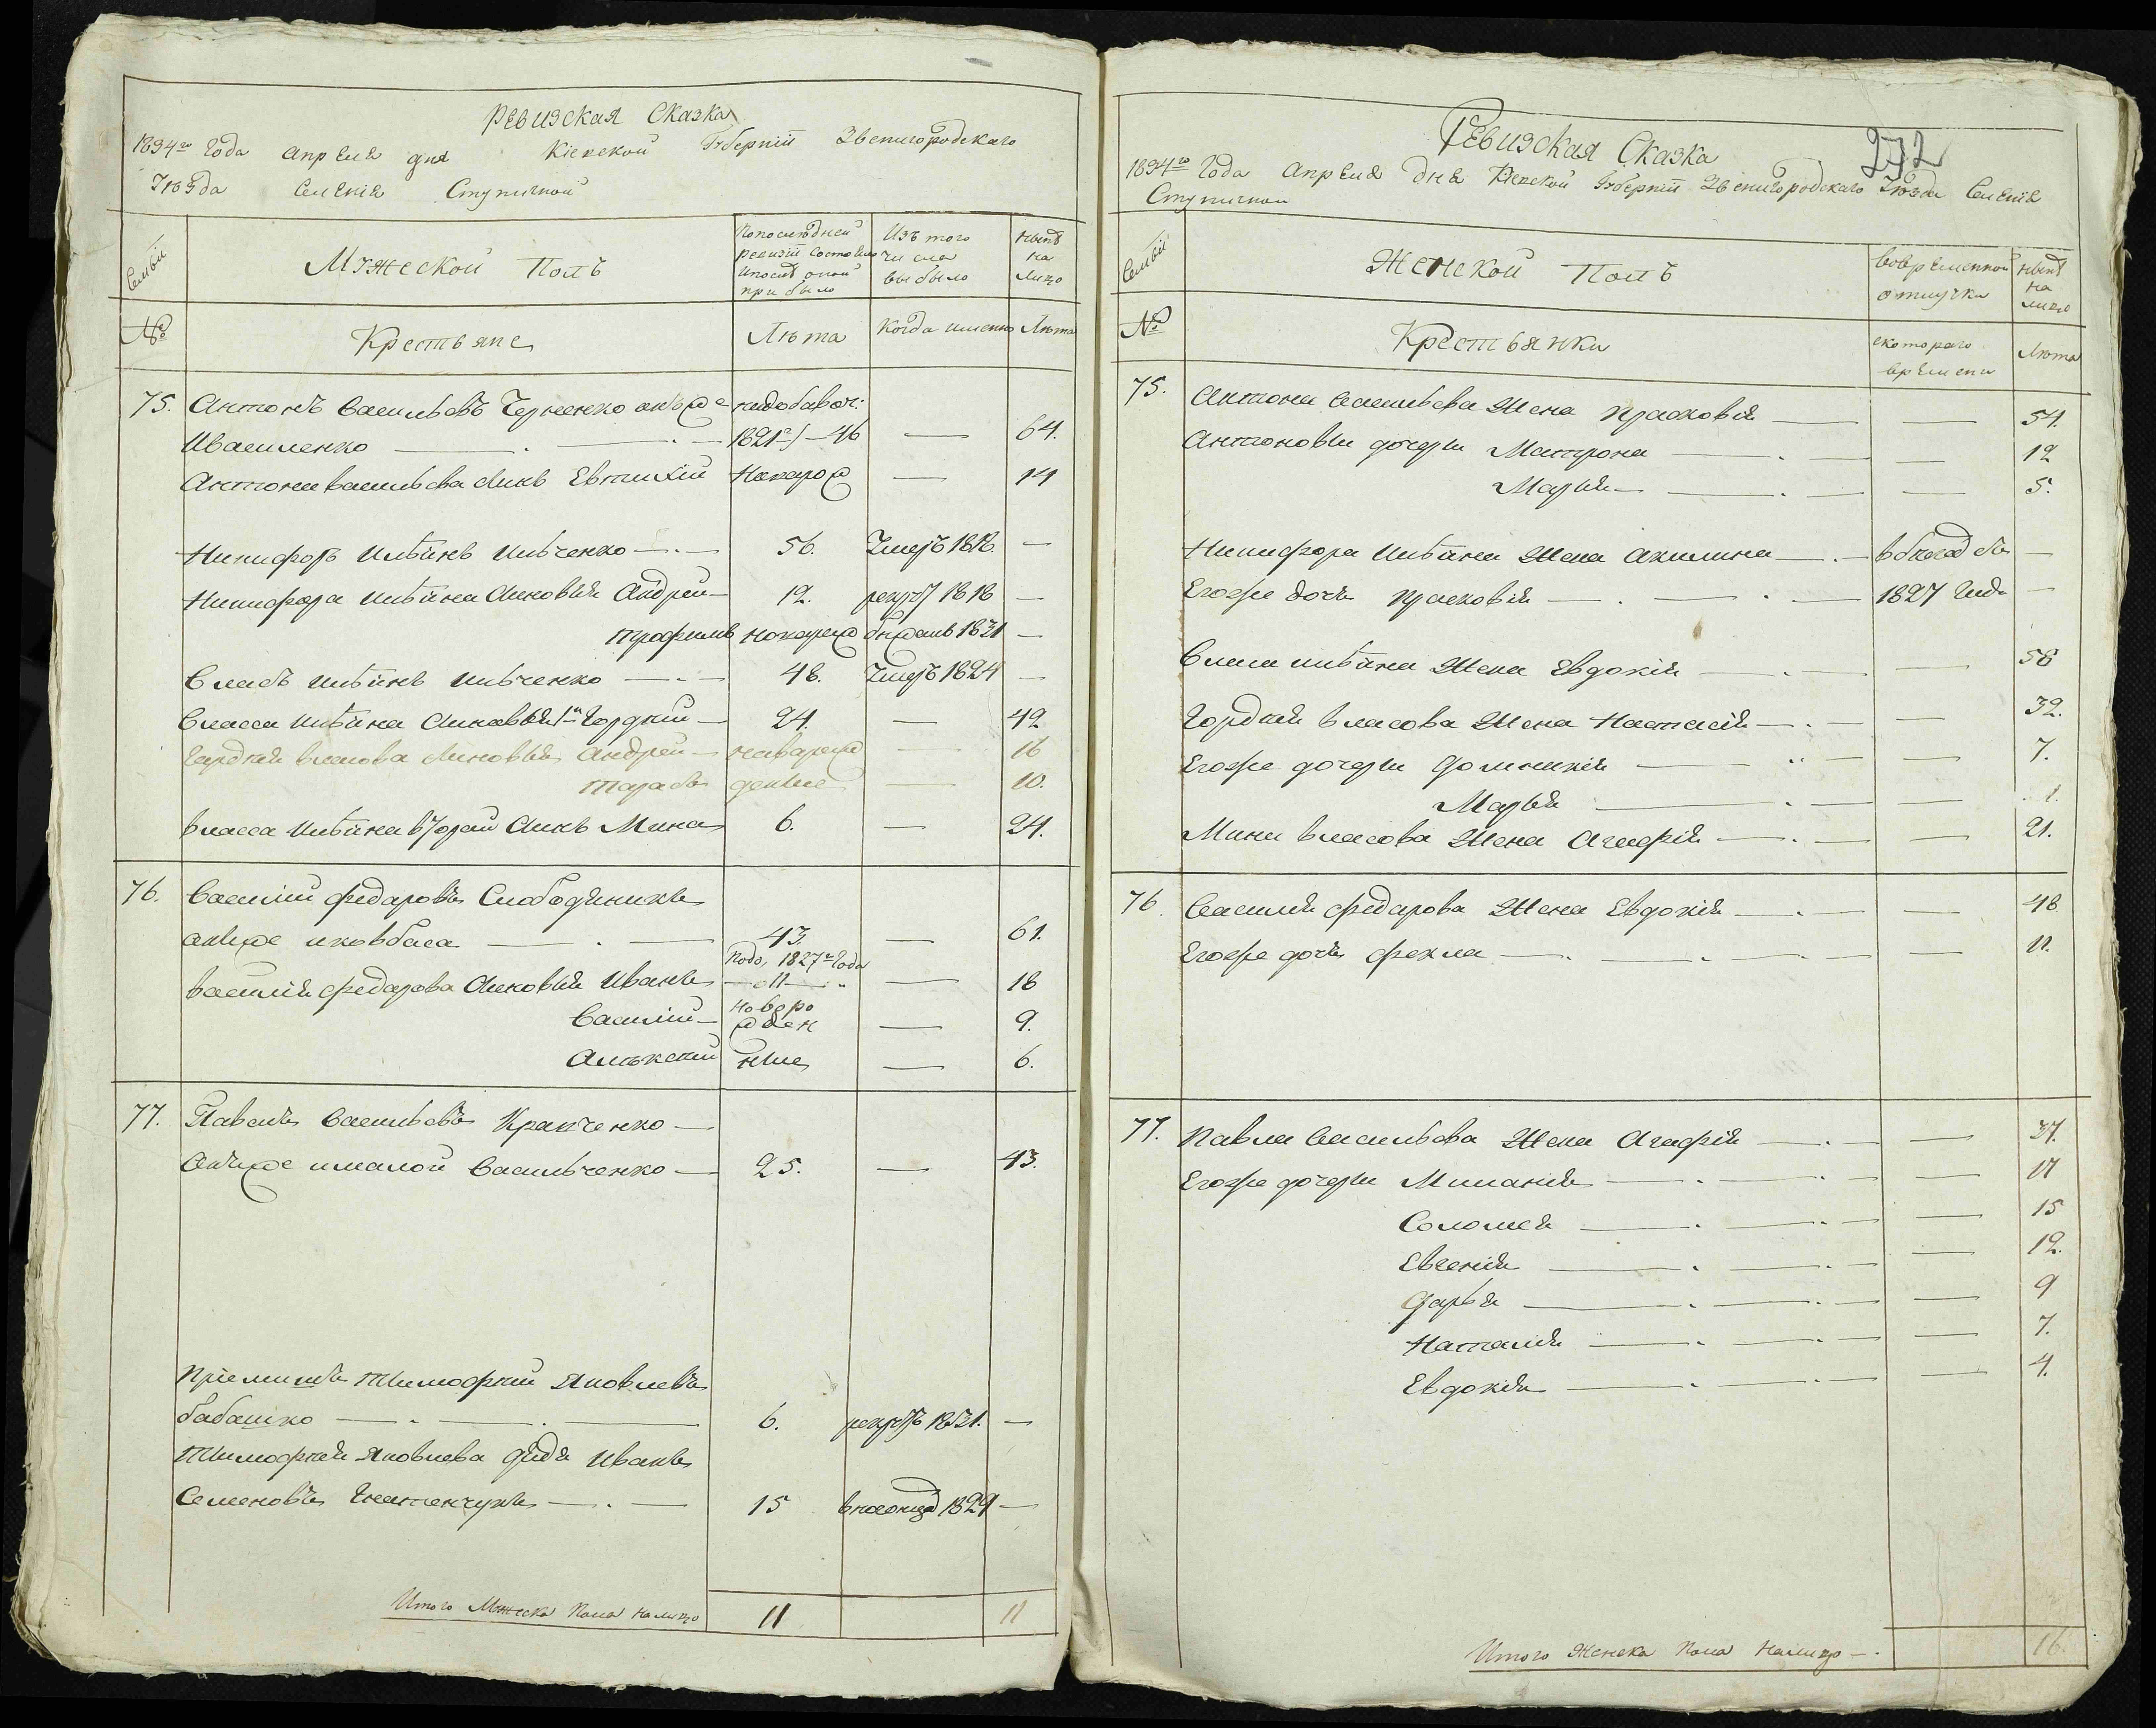 Ревизская Сказка
1834го Года Апреля дня Кіевской Губерніи Звенигородскаго
Уезда Селенія Ступичной
Семьи
Мужеской Полъ
Попоследней
ревизіи состояло
и после оной
прибыло
Изъ того
числа
выбыло
Ныне
на
лицо
№
Крестьяне
Лета
Когда именно
Лета
75. Антонъ Васильевъ Черненко онъже подобавоч:
Иваниленко 1821г/—46 — 64.
Антона Васильева сынъ Евтихій Новорож — 14
Никифоръ Ильинъ Ильченко 56. Умеръ 1818. —
Никифора Ильина сыновья Андрей 12. рекрут 1818 —
Трофимъ новорож 1831 —
Власъ Ильинъ Ильченко 48. Умеръ 1824 —
Власа Ильина сыновья 1й Гордей 24. — 42
Гордея Власова сыновья Андрей новорож — 16
Тарасъ денные — 10.
Власа Ильина второй сынъ Мина 6. — 24.
76. Василій Федоровъ Слободяникъ
онъже Ковбаса 43. — 61.
Подо, 1827го Года
Василія Федорова сыновья Иванъ 11 — 18
Василій новоро
жден — 9.
Алексей ные — 6.
77. Павелъ Васильевъ Кравченко
онъже Василь­ченко 25. — 43.
Пріемышъ Тимофей Яковлевъ
Бабашко 6. рекрутъ 1831. —
Тимофея Яковлева дядя Иванъ
Семеновъ 15 1829 —
Итого Мужеска Пола налицо 11 11
272
Ревизская Сказка
1834го Года Апреля дня Кіевской Губерніи Звенигородскаго Уезда Селенія
Ступичной
Семьи
Женской Полъ
Вовременной
отлучки
Ныне
на
лицо
№
Крестьянки
скотораго
времени
Лета
75. Антона Васильева Жена Прасковія — 54.
Антоновы дочери Матрона — 12
Марья — 5.
Никифора Ильина Жена Акилина —
Егоже дочь Прасковія 1827 Года —
Власа Ильина Жена Евдокія — 58
Гордея Власова Жена Настасія — 32.
Егоже дочери Доминикія — 7.
Марья — 1.
Мины Власова Жена Агафія — 21.
76. Василія Федорова Жена Евдокія — 48
Егоже дочь Фекла — 11.
77. Павла Васильева Жена Агафія — 37.
Егоже дочери Миланія — 17
Соломея — 15
Евгенія — 12.
Дарья — 9
Наталія — 7.
Евдокія — 4.
Итого Женска Пола Налицо 16.